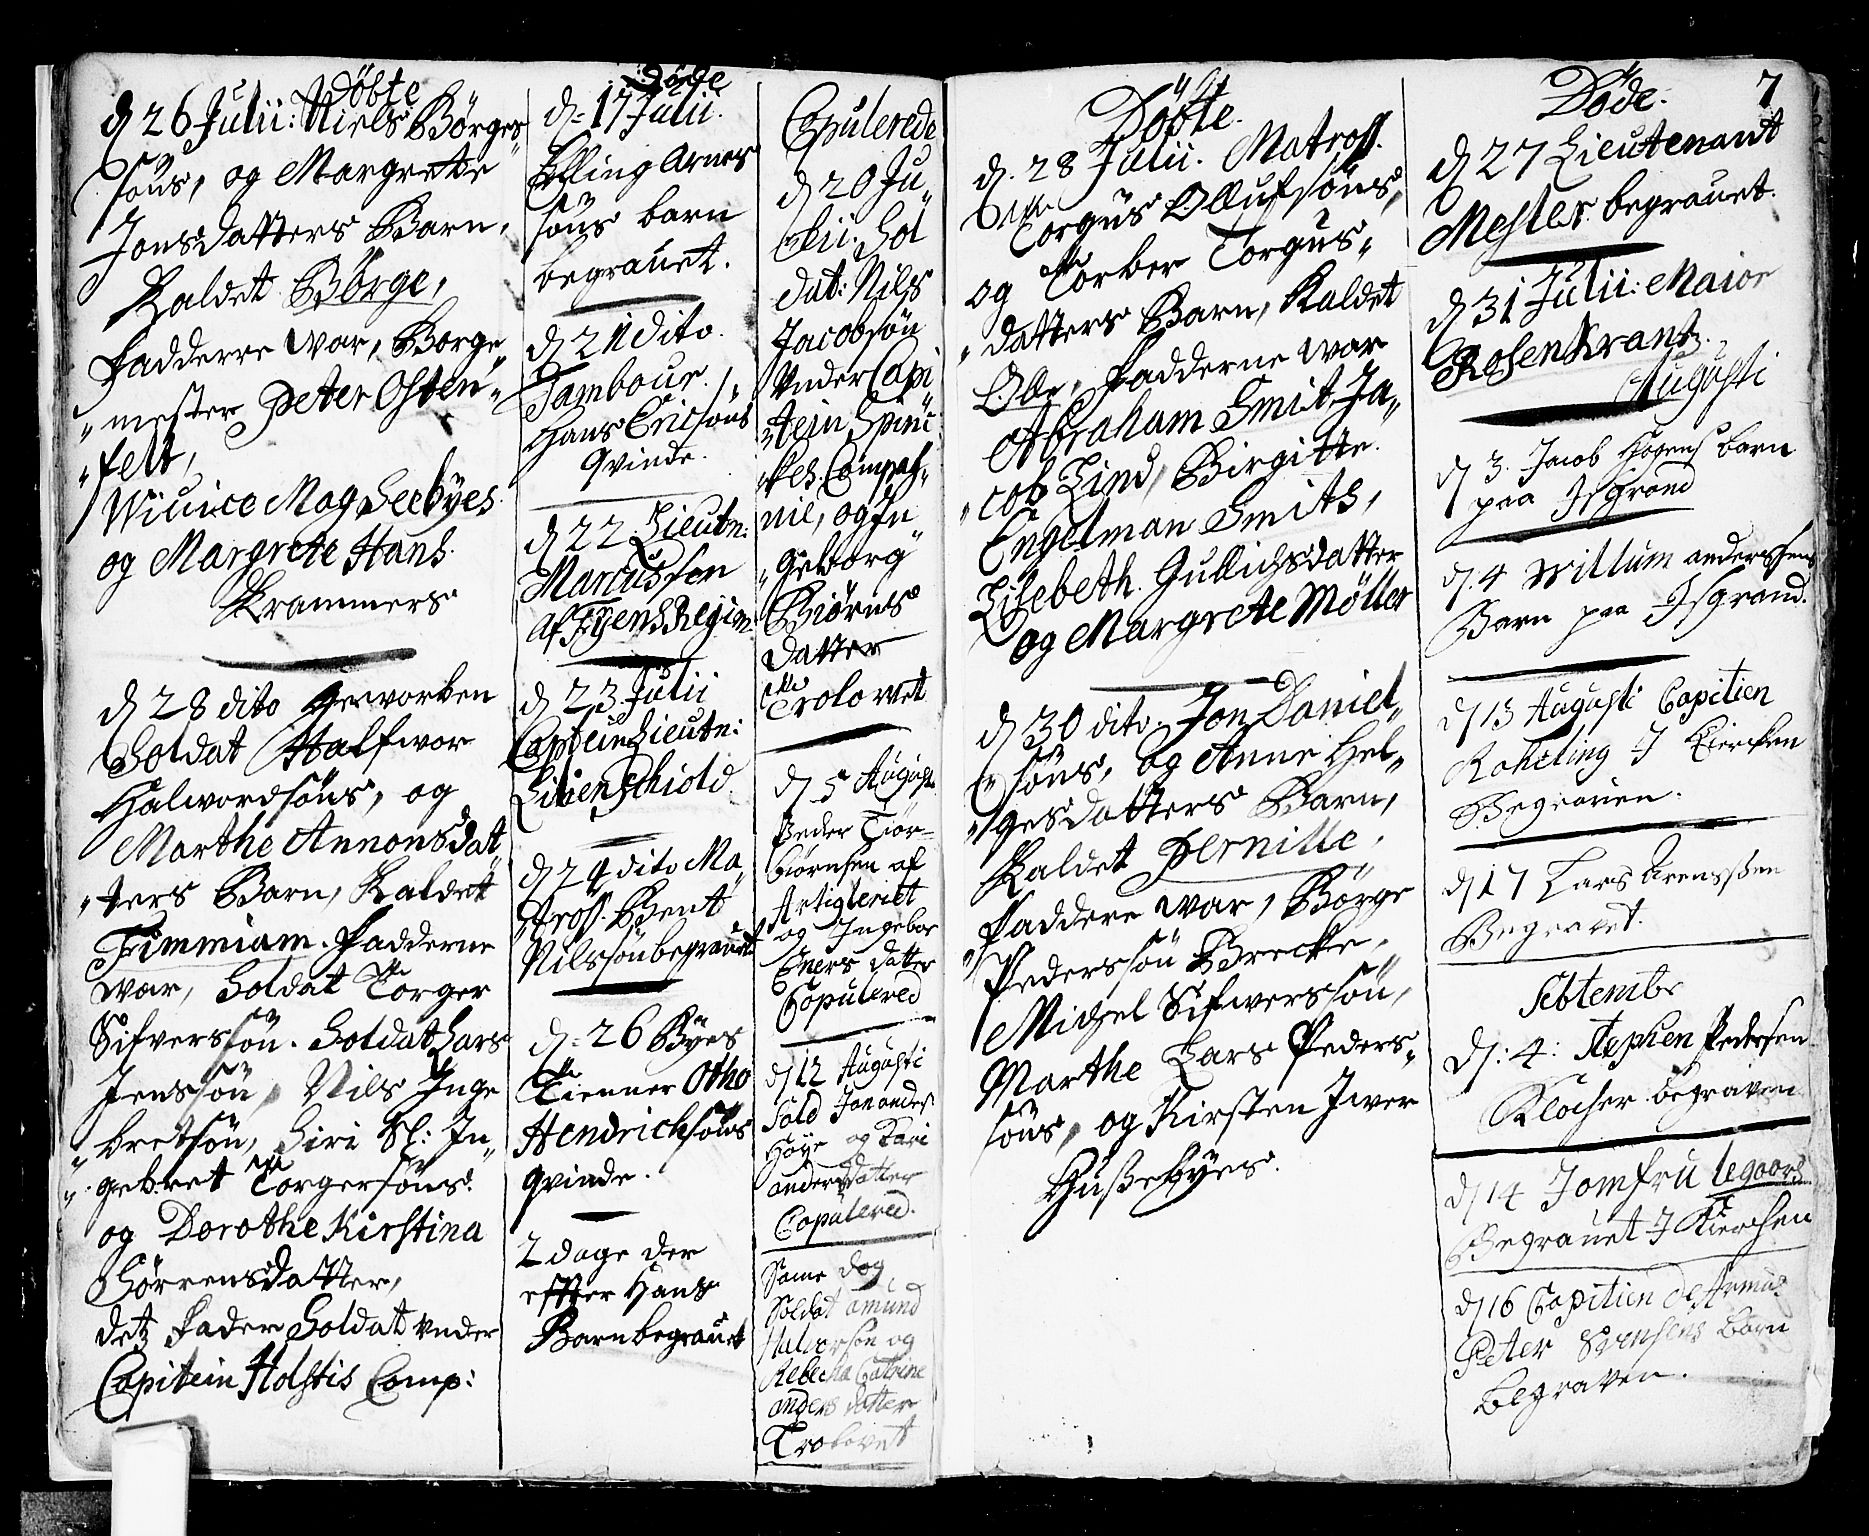 Döbte
d 26 Julii: Niels Börge„
söns, og Margrette
Jonsdatters Barn,
Kaldet Börge,
Fadderre war, Borge„
„mester Peter Osten„
„felt,
og Margrete Hans
Krammers
d 28 dito Geworben
Soldat Halfwor
Halwordsöns, og
Marthe Annonsdat„
„ters Barn, Kaldet
Fimmiam. Fadderne
war, Soldat Torger
Sifverssön. Soldat Lars
Jenssön, Nils Inge„
„bretsön, Siri Sl: In„
„gebret Torgersöns
og Dorothe Kirstina
Sörrensdatter,
detz Fader Soldat under
Capitein Holstis Comp:
Döde
d= 17 Julii.
Elling Arnes
söns barn
begrauet.
d 21 dito.
Tambour
Hans Ericsöns
Qvinde.
d 22 Lieutn:
Marcussen
af Fyens Regim:
d 23 Julii
Captein Lieutn:
Lilienschiold.
d 24 dito Ma„
„tross. Bent
Nilssön begrauet
d= 26 Byes
Tienner Otho
Hendricksöns
qvinde.
2 dage der
effter Hans
Barn begrauet
Copulerede
d 20 Ju„
„lii: Sol
dat: Nils
Jacobsön
under Capi
„tein Spinc
„kes. Compag„
nie, og In„
„geborg
Biörns
datter
Trolovet
d 5 Augusti
Peder Tior=
biörnsen af
Artigleriet
og Ingebor
Eners datter
Copulered
d 12 Augusti
Sold Jon anders
Höye og Kari
anders datter
Copulered.
Same dag
Soldat amund
Halvorsön og
Rebecka Catrine
anders datter
Trolovet
Döbte.
d. 28 Julii. Matross.
Torgus Ollufsöns,
og Torber Torgus„
„datters Barn, Kaldet
Ole, Fadderne war
Abraham Smit, Ja„
„cob Lind, Birgitte
Engelman Smits,
Lisebeth Gullichsdatter
og Margrete Möller
d 30 dito. Jon Daniel„
„söns, og Anne Hel„
„gesdatters Barn,
Kaldet Pernille,
Faddere war, Börge
Pederssön Brecke,
Michel Sifverssön,
Marthe Lars Peders„
söns, og Kirsten Iwer
Hussebyes.
Döde. 7
d 27 Lieutenant
Mester begrauet.
d 31 Julii: Maior
Rosenkrantz.
Augusti
d 3. Jacob Hagens barn
paa Isgrand
d. 4 Willum anderssens
Barn paa Isgrand.
d 13 Augusti Capitien
Roheling I Kiercken
Begraven.
d 17 Lars Arenssen
Begravet.
Sebtembr
d: 4: Stephen Pedersen
Klocker begraven
d 14 Jomfru legaars
Begrauet I Kierchen
d 16 Capitien de Armus
Peter Svensens barn
Begraven.